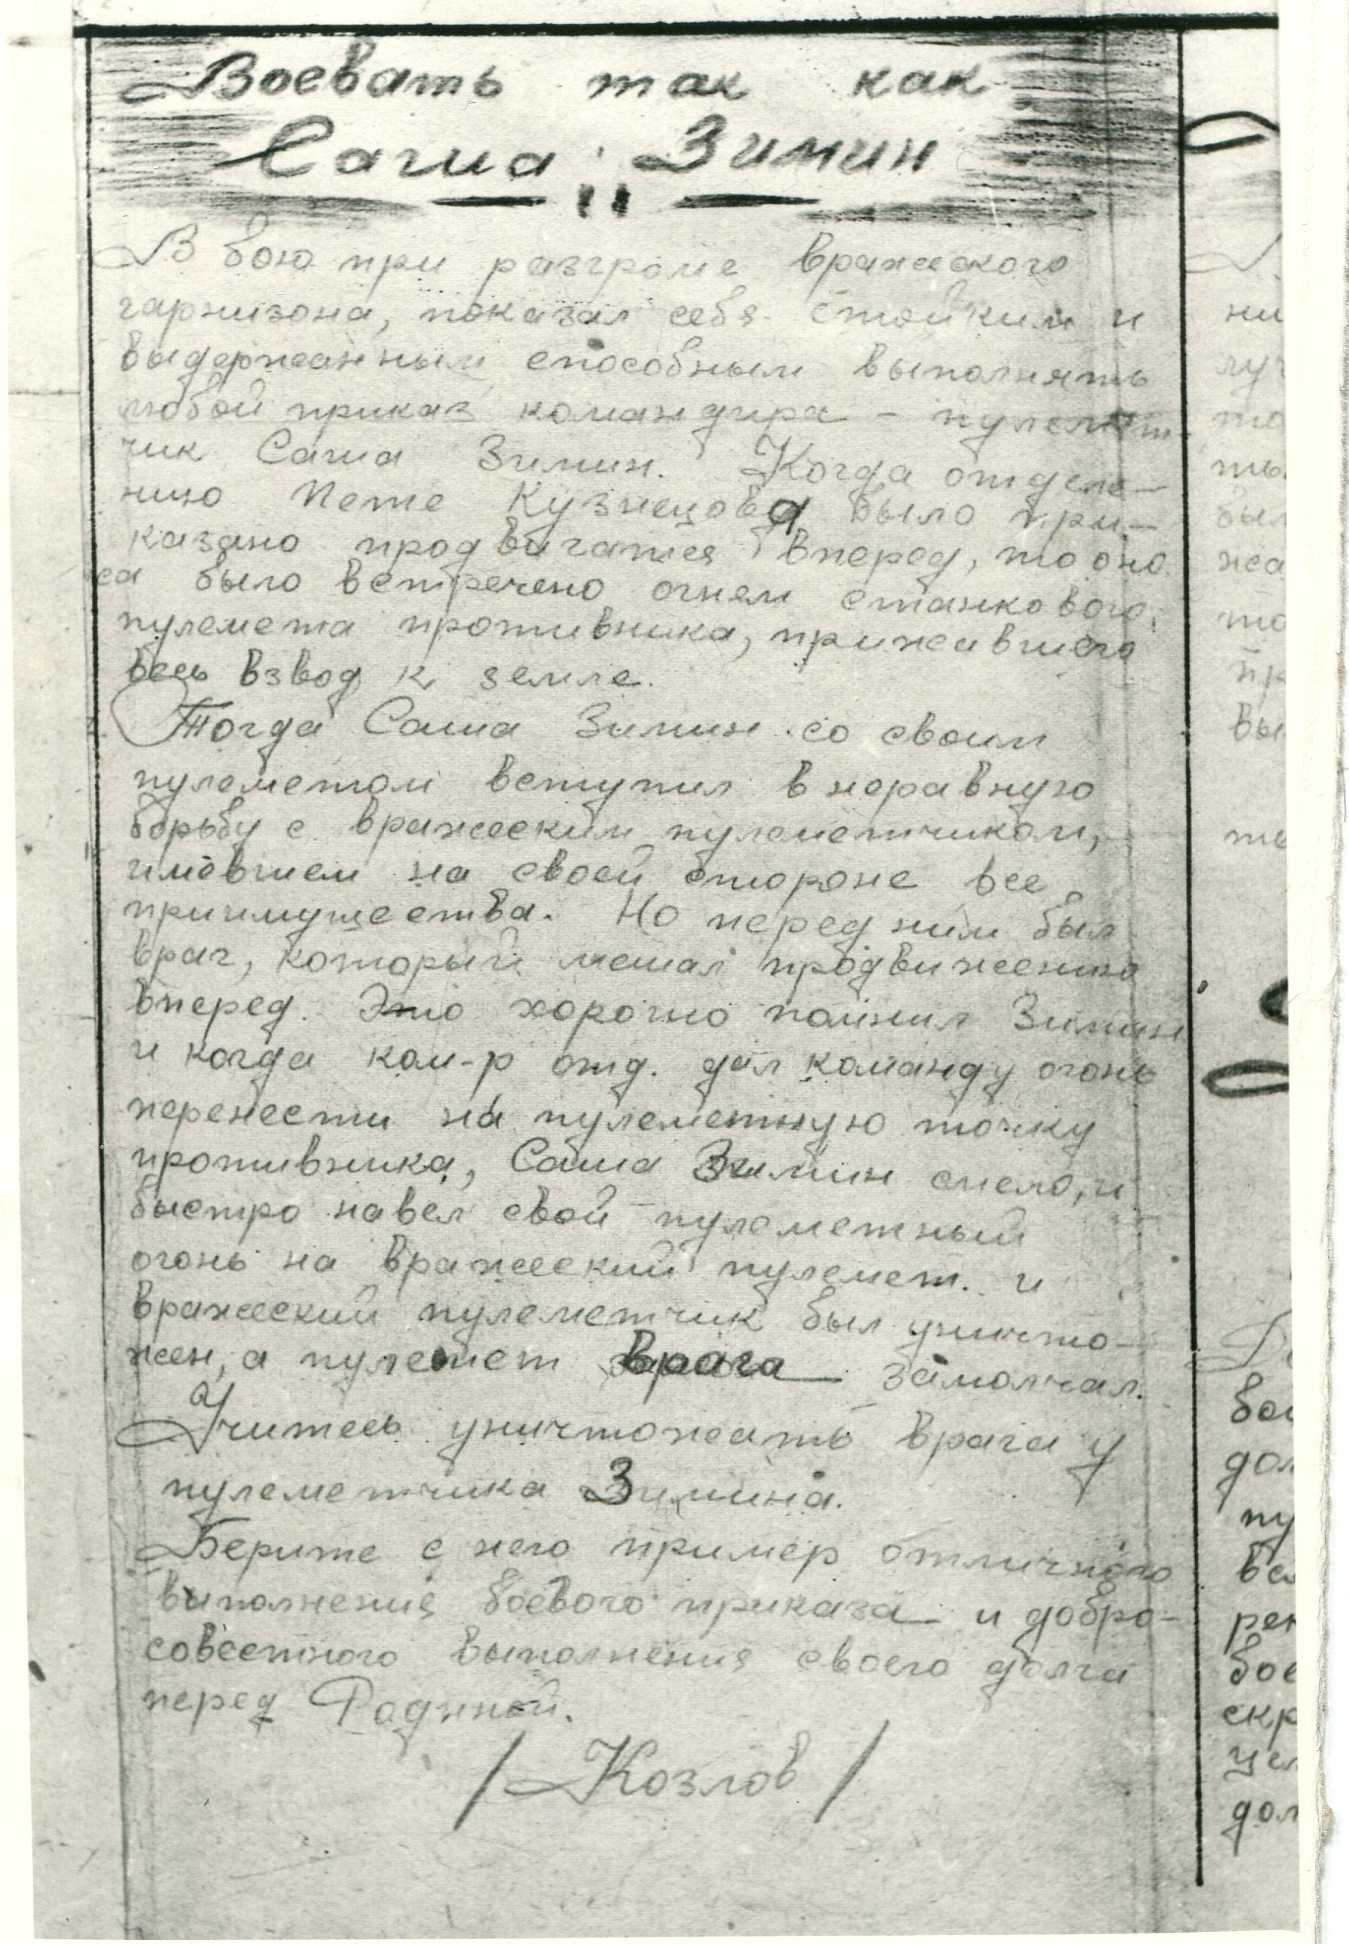 Воевать так как
Саша Зимин
В бою при разгроме вражеского
гарнизона, показал себя стойким и
выдержанным способным выполнять
любой приказ командира - пулемет
чик Саша Зимин. Когда отделе-
нию Пете Кузнецова было при-
казано продвигатся вперед, то оно
было встречено огнем станкового
пулемета противника, прижавшего
весь взвод к земле.
Тогда Саша Зимин со своим
пулеметом вступил в неравную
борьбу с вражеским пулеметчиком,
имевшем на своей стороне все
приимущества. Но перед ним был
враг, который мешал продвижению
вперед. Это хорошо помнил Зимин
и когда ком-р отд. дал команду огонь
перенести на пулеметную точку
противника, Саша Зимин смело, и
быстро навел свой пулеметный
огонь на вражеский пулемет. и
вражеский пулеметчик был уничто-
жен, а пулемет врага замолчал.
Учитесь уничтожать врага у
пулеметчика Зимина.
Берите с него пример отличного
выполнения боевого приказа и добро-
совестного выполнения своего долга
перед Родиной.
/ Козлов /